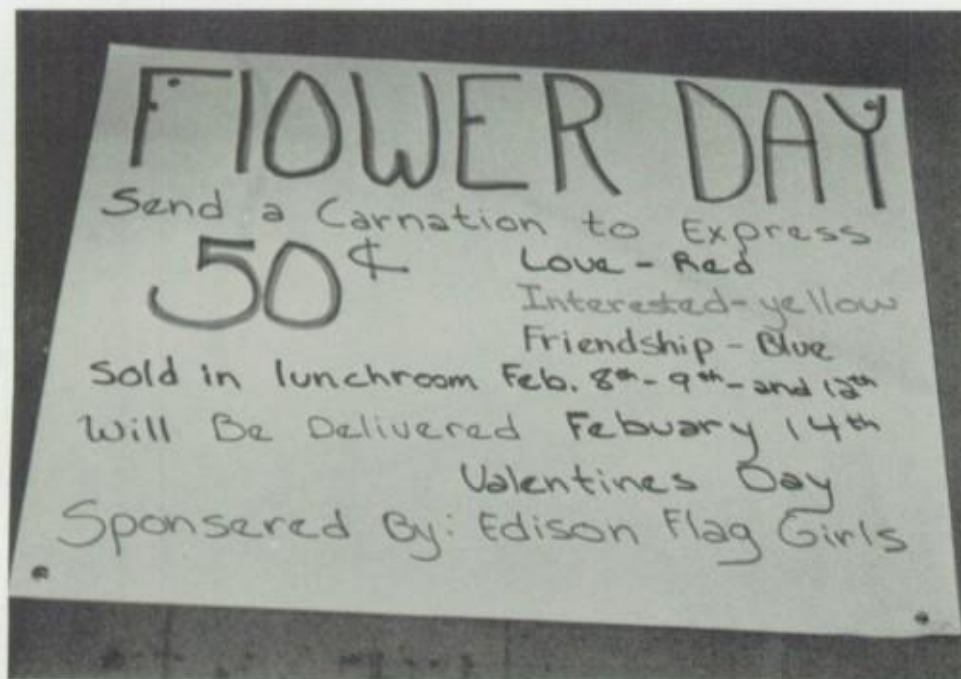 FlOWER DAY
Send a Carnation to Express
50¢ Love - Red
Interested - yellow
Friendship - Blue
Sold in lunchroom Feb. 8th - 9th - and 12th
Will Be Delivered Febuary 14th
Valentines Day
Sponsered By: Edison Flag Girls